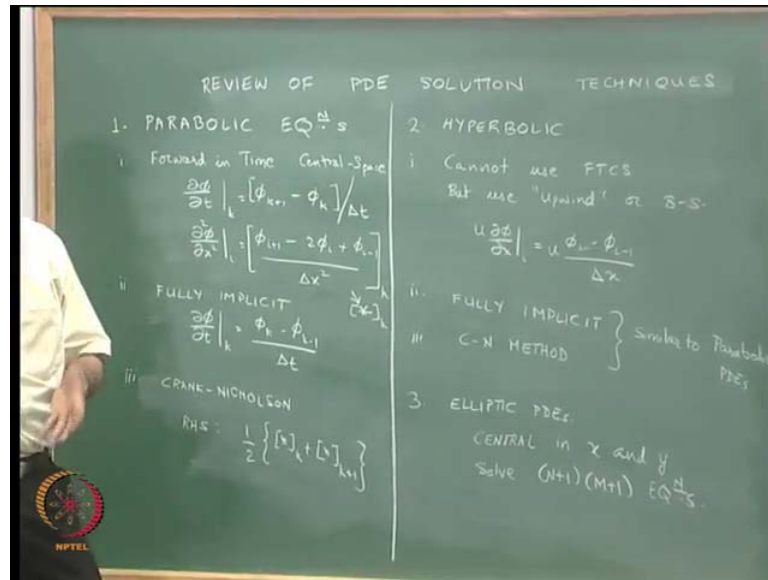 REVIEW OF PDE SOLUTION TECHNIQUES
1. PARABOLIC EQᴺs
i Forward in Time Central-Space
∂φ/∂t|ₖ = [φₖ₊₁ - φₖ]/Δt
∂²φ/∂x²|ᵢ = [φᵢ₊₁ - 2φᵢ + φᵢ₋₁ / Δx²]ₖ
[x]ₖ
ii FULLY IMPLICIT
∂φ/∂t|ₖ = φₖ - φₖ₋₁ / Δt
iii CRANK-NICHOLSON
RHS: 1/2 { [x]ₖ + [x]ₖ₊₁ }
2 HYPERBOLIC
i Cannot use FTCS
But use "Upwind" or B-S.
u ∂φ/∂x|ᵢ = u φᵢ - φᵢ₋₁ / Δx
ii. FULLY IMPLICIT
iii C-N METHOD
} Similar to Parabolic
PDEs
3. ELLIPTIC PDEs.
CENTRAL in x and y
Solve (N+1)(M+1) EQᴺs.
NPTEL